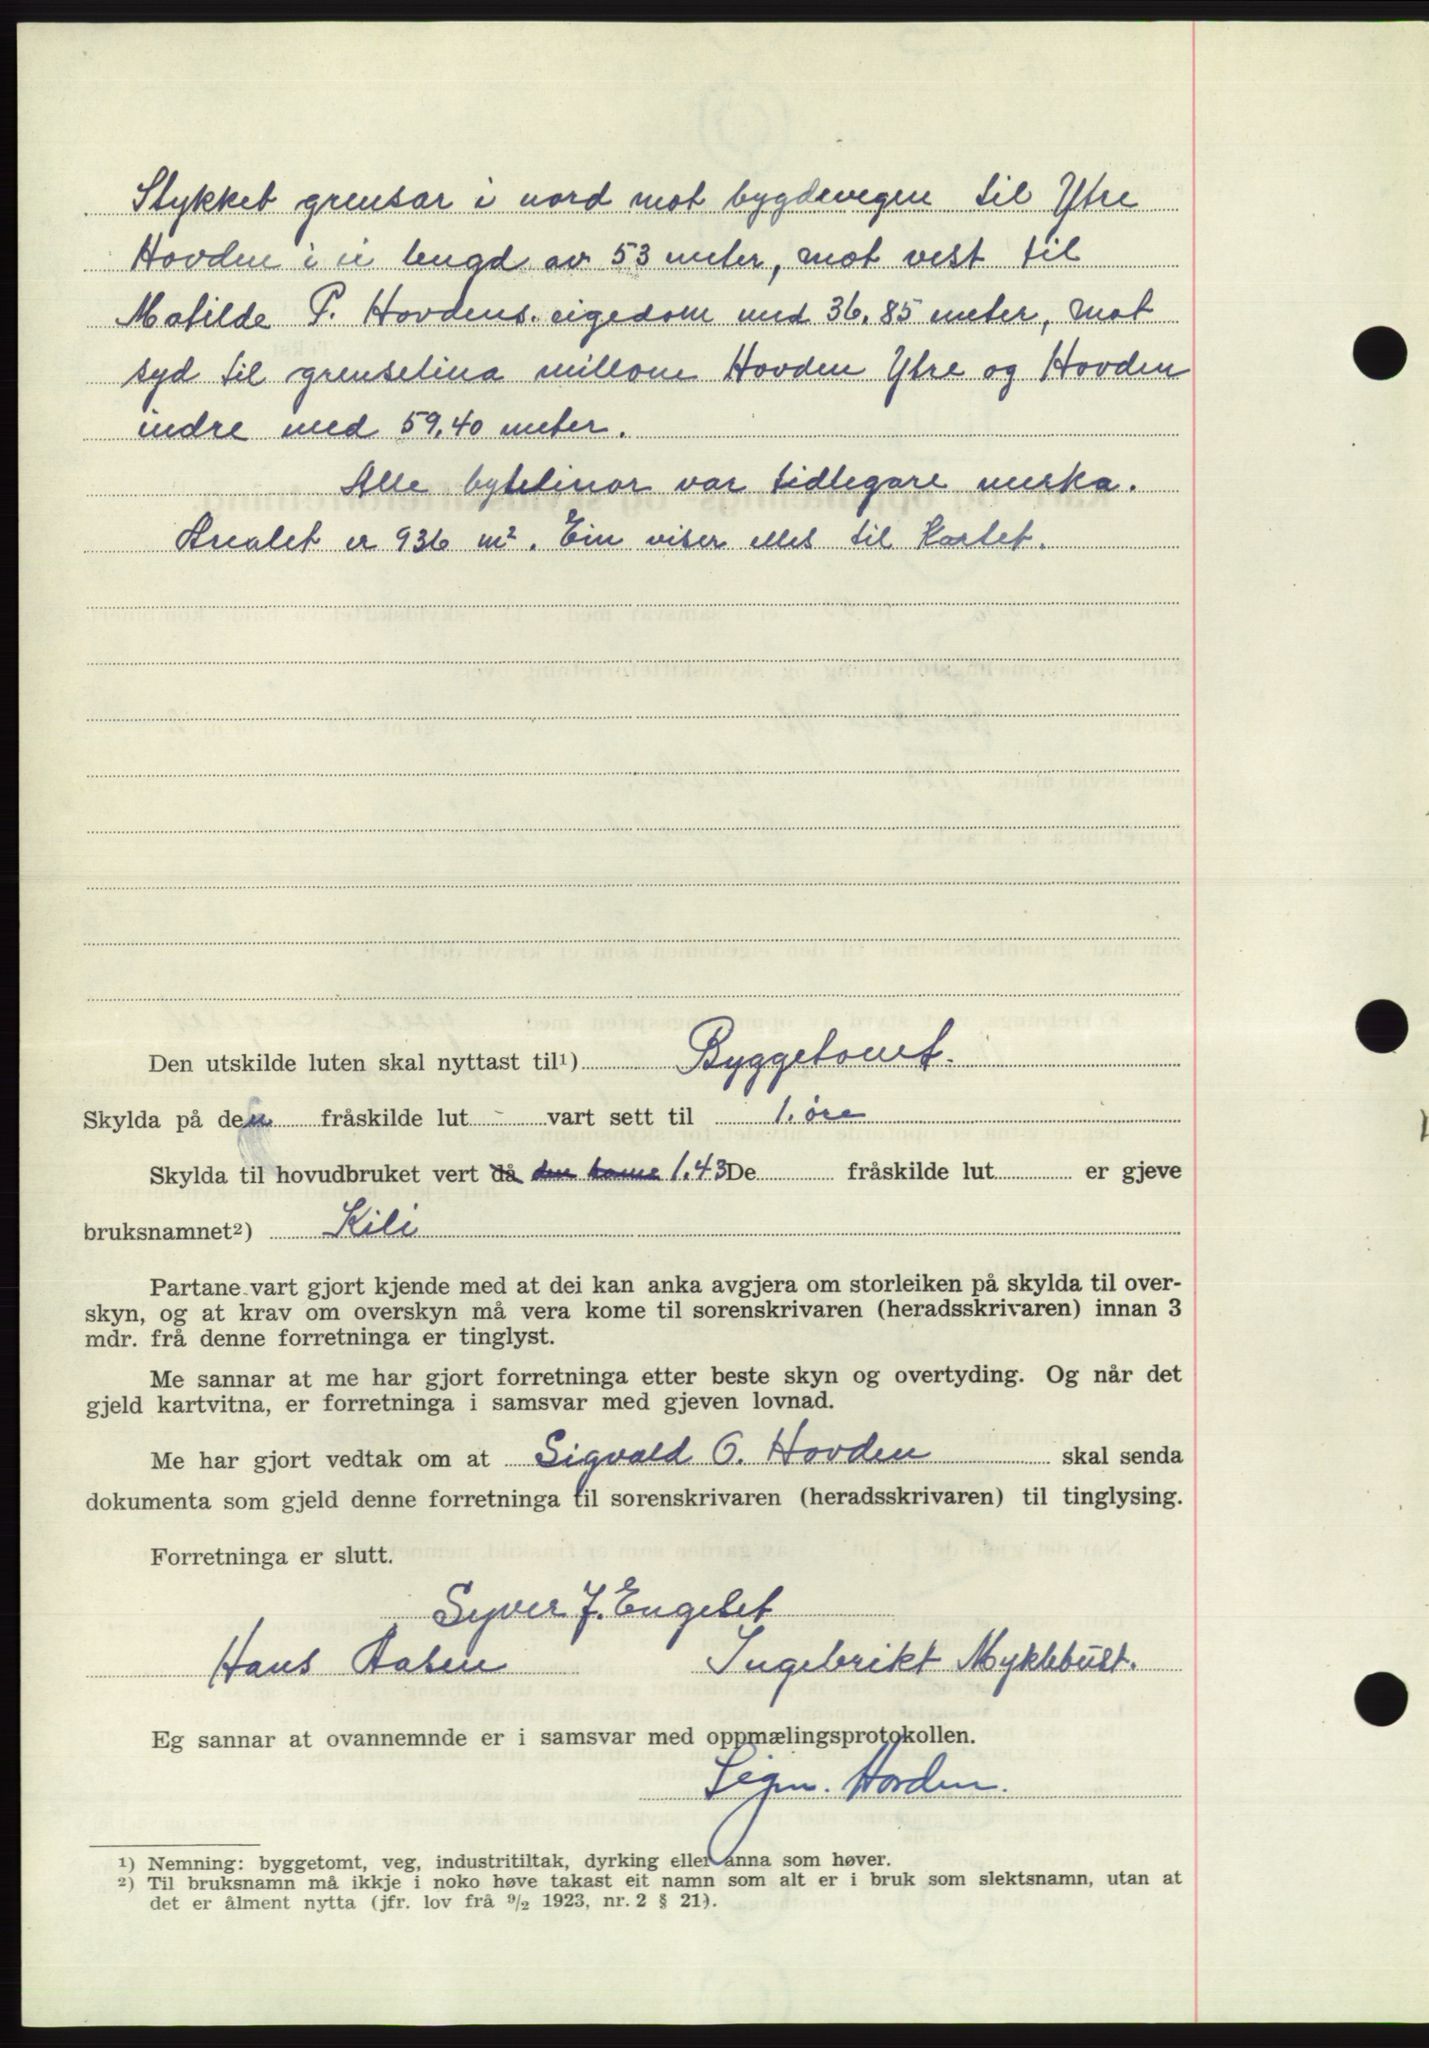 Stykket grensar i nord mot bygdevegen til Ytre
Hovden i ei lengd av 53 meter, mot vest til
Matilde P. Hovdens eigedom med 36.85 meter, mot
syd til grenselina millom Hovden Ytre og Hovden
indre med 59.40 meter.
Alle bytelinor var tidlegare merka.
Arealet er 936 m². Ein viser elles til kartet.
Den utskilde luten skal nyttast til¹) Byggetomt.
Skylda på den fråskilde lut vart sett til 1. øre
Skylda til hovudbruket vert då 1.43 De fråskilde lut er gjeve
bruksnamnet²) Kili
Partane vart gjort kjende med at dei kan anka avgjera om storleiken på skylda til over-
skyn, og at krav om overskyn må vera kome til sorenskrivaren (heradsskrivaren) innan 3
mdr. frå denne forretninga er tinglyst.
Me sannar at me har gjort forretninga etter beste skyn og overtyding. Og når det
gjeld kartvitna, er forretninga i samsvar med gjeven lovnad.
Me har gjort vedtak om at Sigvald O. Hovden skal senda
dokumenta som gjeld denne forretninga til sorenskrivaren (heradsskrivaren) til tinglysing.
Forretninga er slutt.
Syver J. Engeset
Hans Aasen Ingebrikt Myklebust.
Eg sannar at ovannemnde er i samsvar med oppmælingsprotokollen.
Sigm. Hovden.
¹) Nemning: byggetomt, veg, industritiltak, dyrking eller anna som høver.
²) Til bruksnamn må ikkje i noko høve takast eit namn som alt er i bruk som slektsnamn, utan at
det er ålment nytta (jfr. lov frå 9/2 1923, nr. 2 § 21).